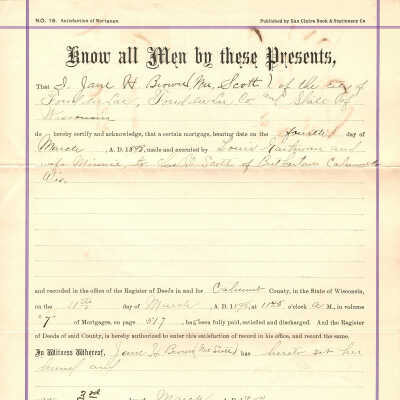 NO. 19. Satisfaction of Mortgage. Published by Eau Claire Book & Stationery Co
Know all Men by these Presents,
That I, Jane H Brown (Nee Scott) of the City of
Fond du Lac, Fond du Lac Co and State of
Wisconsin
do hereby certify and acknowledge, that a certain mortgage, bearing date on the fourth day of
March, A. D. 1895, made and executed by Louis Hartman and
wife Minnie, to Scott of Calumet Co
Wis.
and recorded in the office of the Register of Deeds in and for Calumet County, in the State of Wisconsin,
on the 11th day of March, A. D. 1895, at 11 o'clock A M., in volume
"7" of Mortgages, on page 517, has been fully paid, satisfied and discharged. And the Register
of Deeds of said County, is hereby authorized to enter this satisfaction of record in his office, and record the same.
In Witness Whereof, Jane H Brown (Nee Scott) has hereto set her
hand and
March